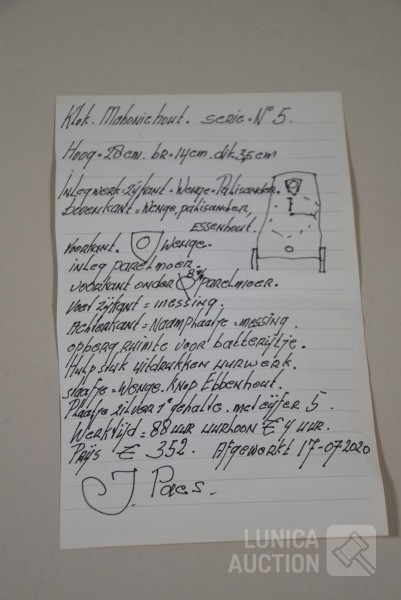 Klok. Mahoniehout. serie. N° 5.
Hoog = 28cm. br = 14cm. dik 3,5cm
Inlegwerk. Zijkant = Wenge = Palisander.
Bovenkant = Wenge, palisander,
Essenhout.
Voorkant. Wenge.
inleg parelmoer.
voorkant onder parelmoer.
Voet zijkant = messing.
Achterkant = Naamplaatje = messing.
opberg ruimte voor batterijtje.
Hulpstuk uitdrukken uurwerk.
staafje = Wenge. Knop Ebbenhout.
Plaatje zilver 1e gehalte. met cijfer 5.
Werktijd = 88 uur uurloon € 4 uur.
Prijs € 352. Afgewerkt 17-07-2020
J. Paes.
LUNICA
AUCTION